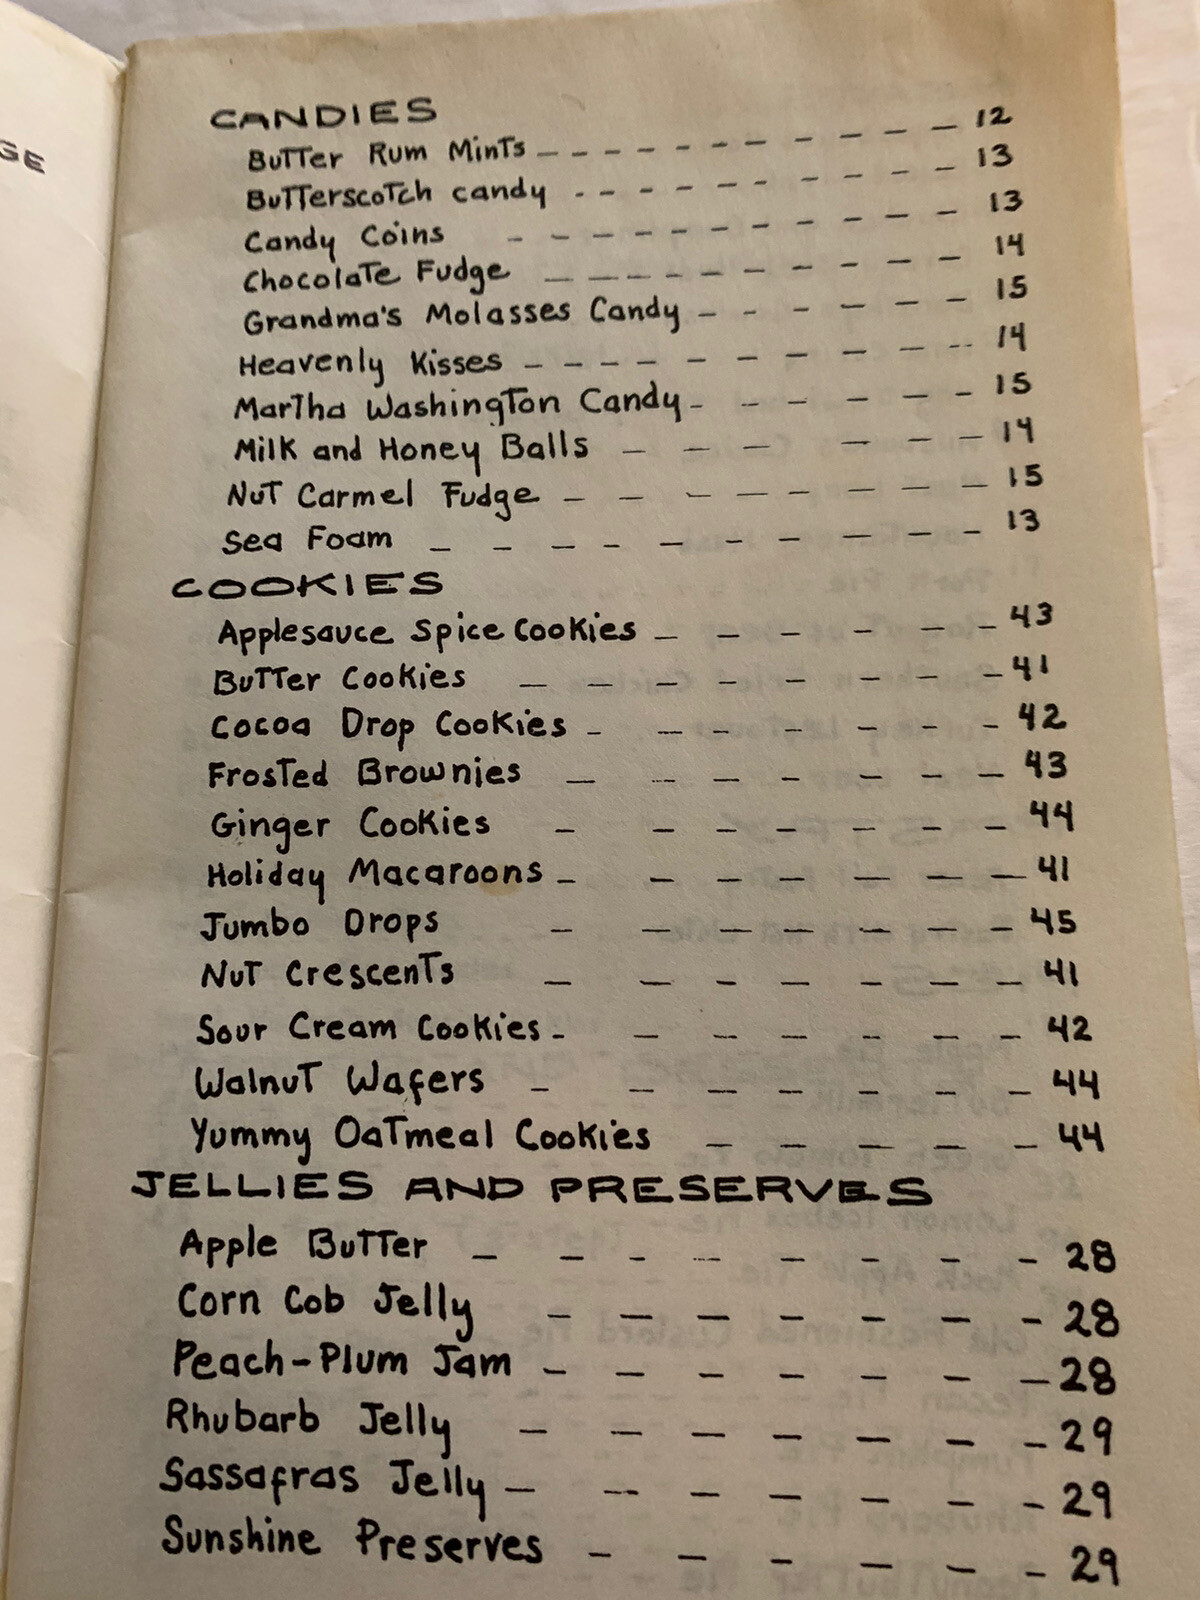 GE
CANDIES
Butter Rum Mints - - - - - - - - - - 12
Butterscotch candy - - - - - - - - - - 13
Candy Coins - - - - - - - - - - - 13
Chocolate Fudge - - - - - - - - - - - 14
Grandma's Molasses Candy - - - - - - - 15
Heavenly Kisses - - - - - - - - - - - 14
Martha Washington Candy - - - - - - - 15
Milk and Honey Balls - - - - - - - 14
Nut Carmel Fudge - - - - - - - - - 15
Sea Foam - - - - - - - - - - 13
COOKIES
Applesauce Spice Cookies - - - - - - 43
Butter Cookies - - - - - - - - 41
Cocoa Drop Cookies - - - - - - - 42
Frosted Brownies - - - - - - - 43
Ginger Cookies - - - - - - - 44
Holiday Macaroons - - - - - - - 41
Jumbo Drops - - - - - - - 45
Nut Crescents - - - - - - - 41
Sour Cream Cookies - - - - - - - 42
Walnut Wafers - - - - - - - 44
Yummy Oatmeal Cookies - - - - - - 44
JELLIES AND PRESERVES
Apple Butter - - - - - - - - - 28
Corn Cob Jelly - - - - - - - - 28
Peach-Plum Jam - - - - - - - 28
Rhubarb Jelly - - - - - - - 29
Sassafras Jelly - - - - - - - 29
Sunshine Preserves - - - - - - 29